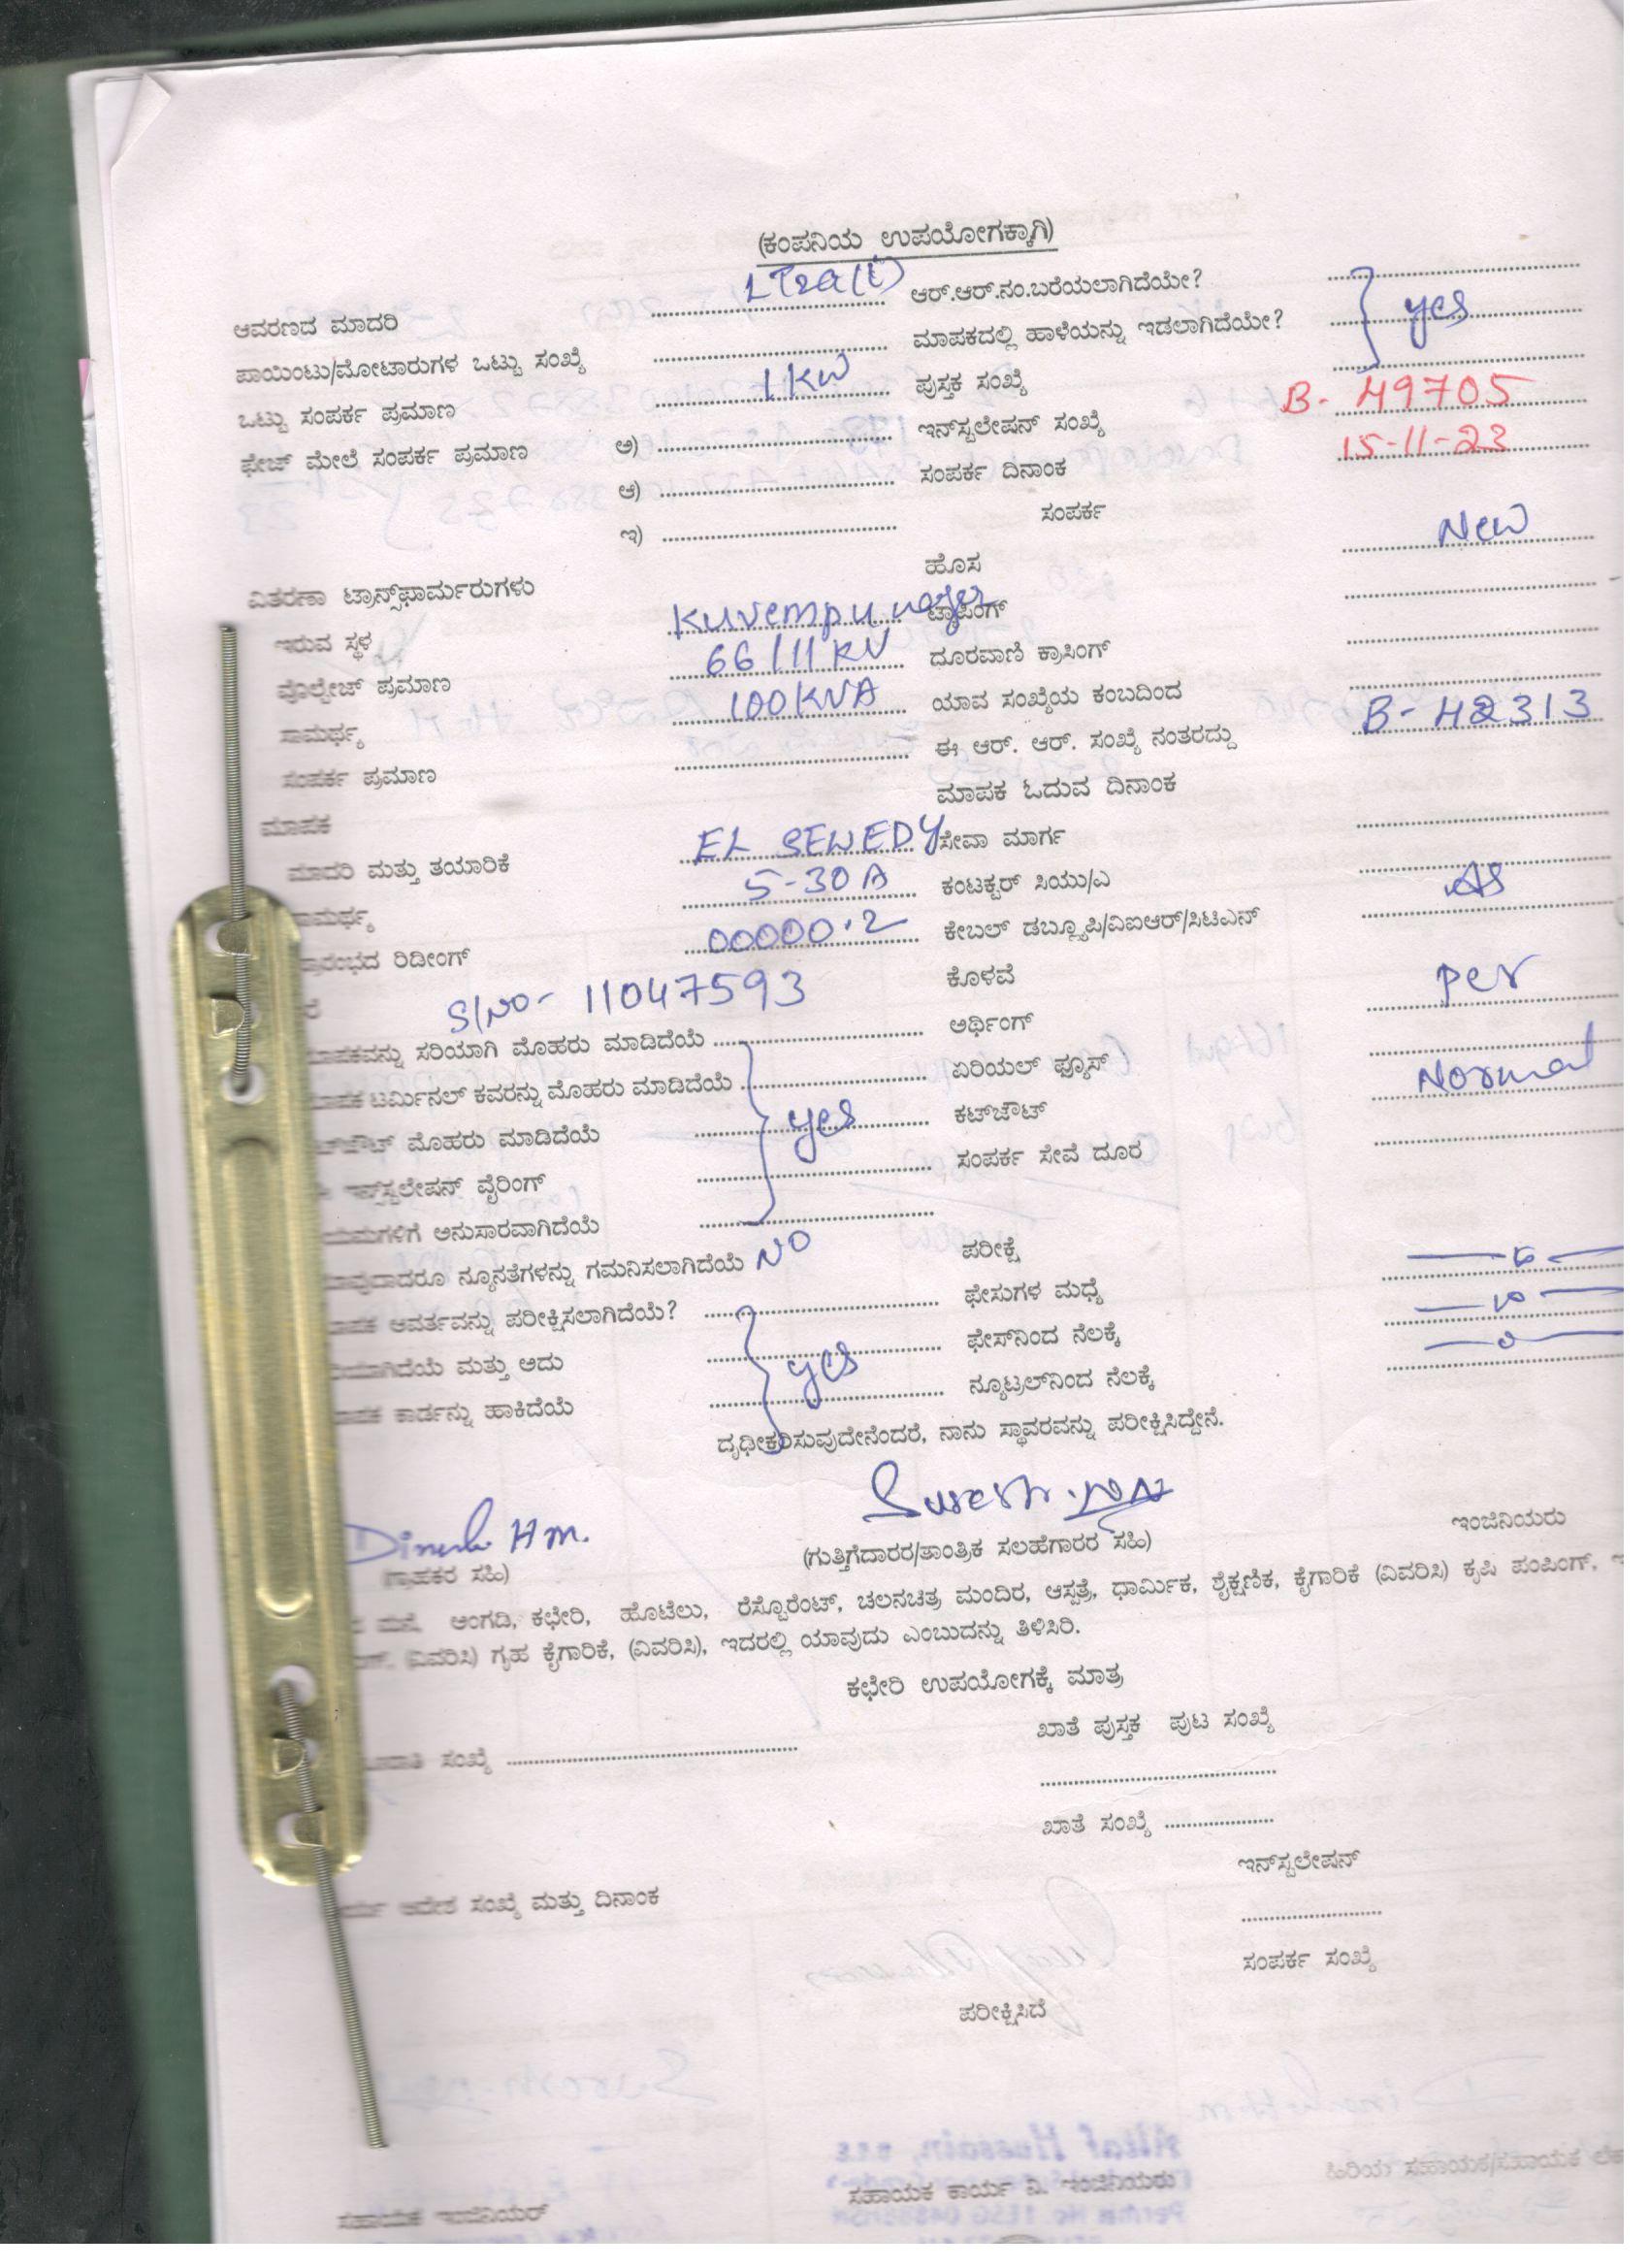 (ಕಂಪನಿಯ ಉಪಯೋಗಕ್ಕಾಗಿ)
ಆವರಣದ ಮಾದರಿ ಆರ್.ಆರ್.ನಂ.ಬರೆಯಲಾಗಿದೆಯೇ?
ಪಾಯಿಂಟು/ಮೋಟಾರುಗಳ ಒಟ್ಟು ಸಂಖ್ಯೆ ಮಾಪಕದಲ್ಲಿ ಹಾಳೆಯನ್ನು ಇಡಲಾಗಿದೆಯೇ? yes
ಒಟ್ಟು ಸಂಪರ್ಕ ಪ್ರಮಾಣ 1 KW ಪುಸ್ತಕ ಸಂಖ್ಯೆ
ಫೇಜ್ ಮೇಲೆ ಸಂಪರ್ಕ ಪ್ರಮಾಣ ಅ) ಇನ್‌ಸ್ಟಲೇಷನ್ ಸಂಖ್ಯೆ B- 49705
ಆ) ಸಂಪರ್ಕ ದಿನಾಂಕ 15-11-23
ಇ) ಸಂಪರ್ಕ
ವಿತರಣಾ ಟ್ರಾನ್ಸ್‌ಫಾರ್ಮರುಗಳು ಹೊಸ New
ಇರುವ ಸ್ಥಳ Kuvempu nagar ಟ್ಯಾಪಿಂಗ್
ವೊಲ್ಟೇಜ್ ಪ್ರಮಾಣ 66/11 KV ದೂರವಾಣಿ ಕ್ರಾಸಿಂಗ್
ಸಾಮರ್ಥ್ಯ 100KVA ಯಾವ ಸಂಖ್ಯೆಯ ಕಂಬದಿಂದ
ಸಂಪರ್ಕ ಪ್ರಮಾಣ ಈ ಆರ್. ಆರ್. ಸಂಖ್ಯೆ ನಂತರದ್ದು B- 42313
ಮಾಪಕ ಮಾಪಕ ಓದುವ ದಿನಾಂಕ
ಮಾದರಿ ಮತ್ತು ತಯಾರಿಕೆ EL SEWEDY ಸೇವಾ ಮಾರ್ಗ
ಸಾಮರ್ಥ್ಯ 5-30 A ಕಂಟಕ್ಟರ್ ಸಿಯು/ಎ As
ರಿಡೀಂಗ್ 00000.2 ಕೇಬಲ್ ಡಬ್ಲ್ಯೂಪಿ/ವಿಐಆರ್/ಸಿಟಿಎನ್
S/NO- 11047593 ಕೊಳವೆ Per
ಸರಿಯಾಗಿ ಮೊಹರು ಮಾಡಿದೆಯೆ ಅರ್ಥಿಂಗ್
ಟರ್ಮಿನಲ್ ಕವರನ್ನು ಮೊಹರು ಮಾಡಿದೆಯೆ ಏರಿಯಲ್ ಫ್ಯೂಸ್ Normal
ಮೊಹರು ಮಾಡಿದೆಯೆ yes ಕಟ್‌ಔಟ್
ಇನ್‌ಸ್ಟಲೇಷನ್ ವೈರಿಂಗ್ ಸಂಪರ್ಕ ಸೇವೆ ದೂರ
ಅನುಸಾರವಾಗಿದೆಯೆ
ನ್ಯೂನತೆಗಳನ್ನು ಗಮನಿಸಲಾಗಿದೆಯೆ NO ಪರೀಕ್ಷೆ
ಆವರ್ತವನ್ನು ಪರೀಕ್ಷಿಸಲಾಗಿದೆಯೆ? ಫೇಸುಗಳ ಮಧ್ಯೆ
ಮತ್ತು ಅದು yes ಫೇಸ್‌ನಿಂದ ನೆಲಕ್ಕೆ
ಕಾರ್ಡನ್ನು ಹಾಕಿದೆಯೆ ನ್ಯೂಟ್ರಲ್‌ನಿಂದ ನೆಲಕ್ಕೆ
ದೃಢೀಕರಿಸುವುದೇನೆಂದರೆ, ನಾನು ಸ್ಥಾವರವನ್ನು ಪರೀಕ್ಷಿಸಿದ್ದೇನೆ.
Dinesh H m. Suresh
(ಗ್ರಾಹಕರ ಸಹಿ) (ಗುತ್ತಿಗೆದಾರರ/ತಾಂತ್ರಿಕ ಸಲಹೆಗಾರರ ಸಹಿ) ಇಂಜಿನಿಯರು
ಮನೆ, ಅಂಗಡಿ, ಕಛೇರಿ, ಹೊಟೆಲು, ರೆಸ್ಟೊರೆಂಟ್, ಚಲನಚಿತ್ರ ಮಂದಿರ, ಆಸ್ಪತ್ರೆ, ಧಾರ್ಮಿಕ, ಶೈಕ್ಷಣಿಕ, ಕೈಗಾರಿಕೆ (ವಿವರಿಸಿ) ಕೃಷಿ ಪಂಪಿಂಗ್,
(ವಿವರಿಸಿ) ಗೃಹ ಕೈಗಾರಿಕೆ, (ವಿವರಿಸಿ), ಇದರಲ್ಲಿ ಯಾವುದು ಎಂಬುದನ್ನು ತಿಳಿಸಿರಿ.
ಕಛೇರಿ ಉಪಯೋಗಕ್ಕೆ ಮಾತ್ರ
ಖಾತೆ ಪುಸ್ತಕ ಪುಟ ಸಂಖ್ಯೆ
ಸಂಖ್ಯೆ
ಖಾತೆ ಸಂಖ್ಯೆ
ಇನ್‌ಸ್ಟಲೇಷನ್
ಆದೇಶ ಸಂಖ್ಯೆ ಮತ್ತು ದಿನಾಂಕ
ಸಂಪರ್ಕ ಸಂಖ್ಯೆ
ಪರೀಕ್ಷಿಸಿದೆ
ಸಹಾಯಕ ಇಂಜಿನಿಯರ್ ಸಹಾಯಕ ಕಾರ್ಯ ನಿ. ಇಂಜಿನಿಯರು ಹಿರಿಯ ಸಹಾಯಕ/ಸಹಾಯಕ